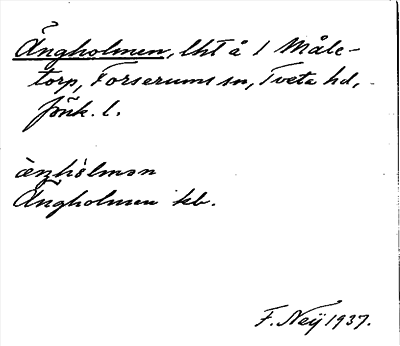 Ängholmen, lht å 1 Måle-
torp, Forserums sn, Tveta hd,
Jönk. l.
ænghòlmən
Ängholmen kb.
F. Neÿ 1937.